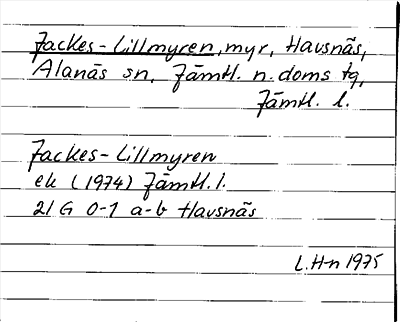 Jackes-Lillmyren, myr, Havsnäs,
Alanäs sn, Jämtl. n. doms tg,
Jämtl. l.
Jackes-Lillmyren
ek (1974) Jämtl. l.
21 G 0-1 a-b Havsnäs
L.H-n 1975